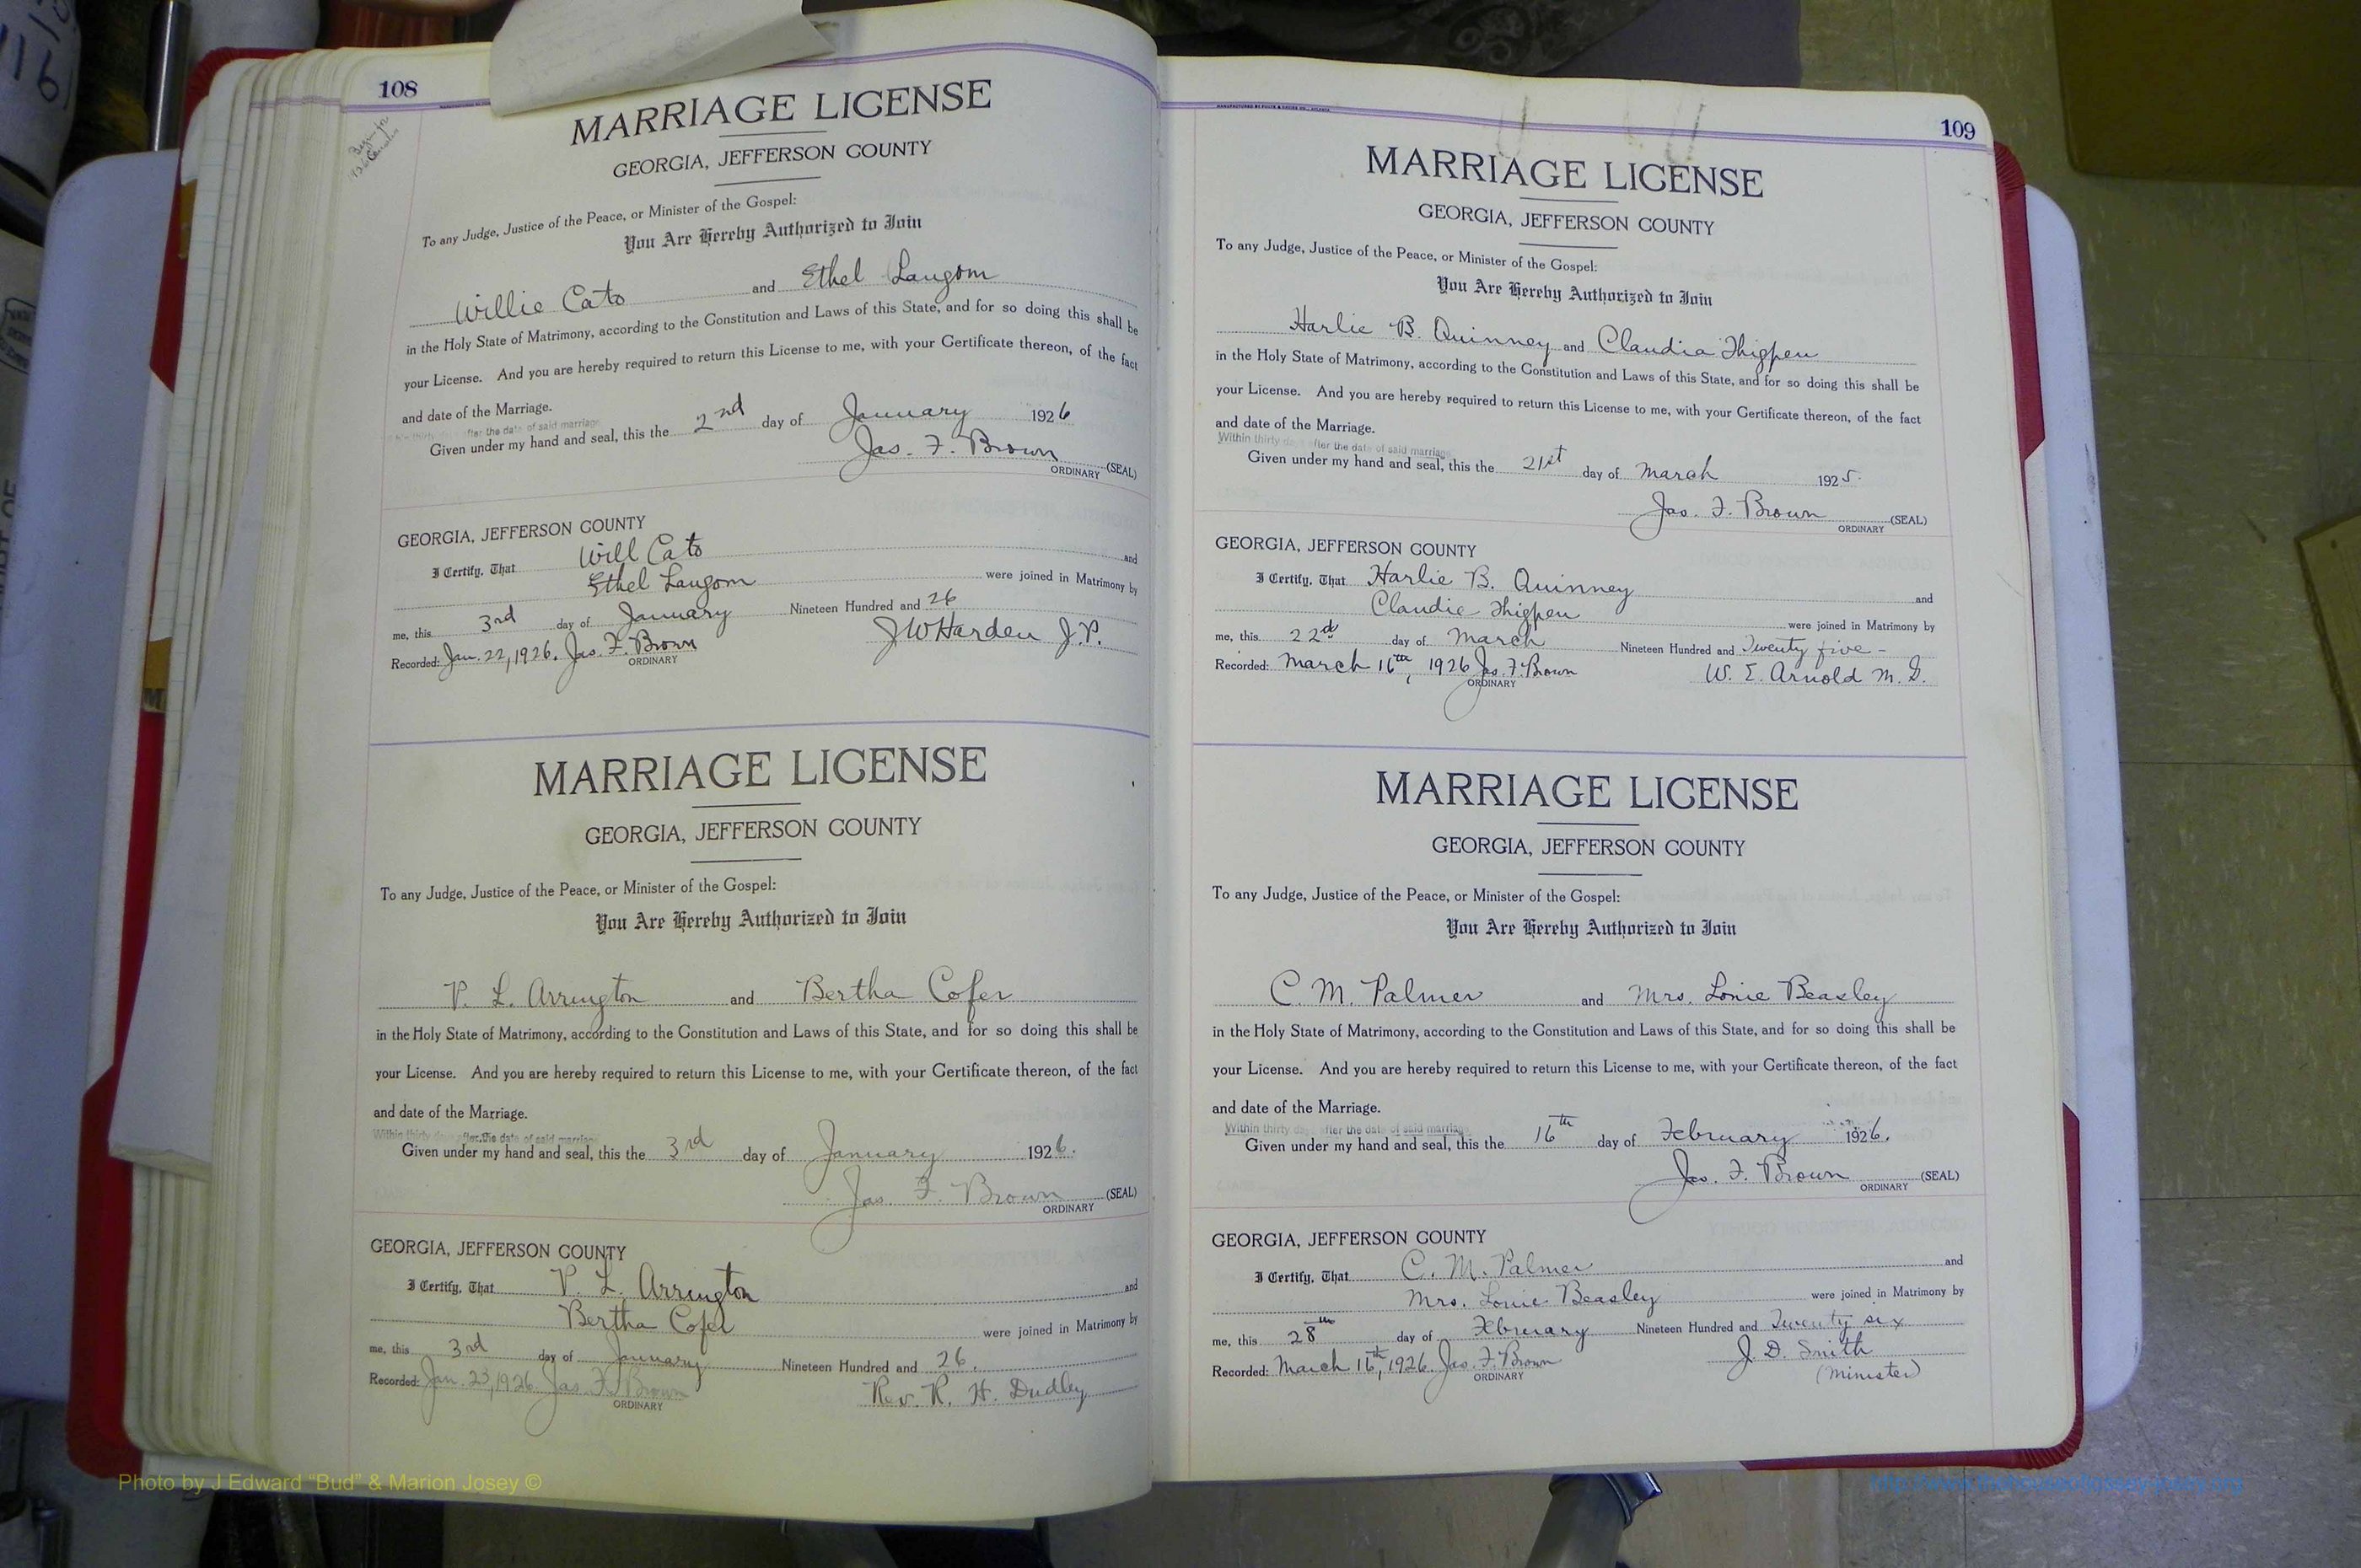 108
MARRIAGE LICENSE
GEORGIA, JEFFERSON COUNTY
To any Judge, Justice of the Peace, or Minister of the Gospel:
You Are Hereby Authorized to Join
Willie Cato and Ethel Langom
in the Holy State of Matrimony, according to the Constitution and Laws of this State, and for so doing this shall be
your License. And you are hereby required to return this License to me, with your Certificate thereon, of the fact
and date of the Marriage.
thirty after the date of said marriage
Given under my hand and seal, this the 2nd day of January 1926
Jas. F. Brown (SEAL)
ORDINARY
GEORGIA, JEFFERSON COUNTY
I Certify, That Will Cato and
Ethel Langom were joined in Matrimony by
me, this 3rd day of January Nineteen Hundred and 26
Recorded: Jan. 22, 1926. Jas. F. Brown J W Harden J. P.
ORDINARY
MARRIAGE LICENSE
GEORGIA, JEFFERSON COUNTY
To any Judge, Justice of the Peace, or Minister of the Gospel:
You Are Hereby Authorized to Join
P. L. Arrington and Bertha Cofer
in the Holy State of Matrimony, according to the Constitution and Laws of this State, and for so doing this shall be
your License. And you are hereby required to return this License to me, with your Certificate thereon, of the fact
and date of the Marriage.
Within thirty days after the date of said marriage
Given under my hand and seal, this the 3rd day of January 1926.
Jas. F. Brown (SEAL)
ORDINARY
GEORGIA, JEFFERSON COUNTY
I Certify, That P. L. Arrington and
Bertha Cofer were joined in Matrimony by
me, this 3rd day of January Nineteen Hundred and 26.
Recorded: Jan. 23, 1926 Jas. F. Brown Rev. R. H. Dudley
ORDINARY
109
MARRIAGE LICENSE
GEORGIA, JEFFERSON COUNTY
To any Judge, Justice of the Peace, or Minister of the Gospel:
You Are Hereby Authorized to Join
Harlie B. Quinney and Claudia Thigpen
in the Holy State of Matrimony, according to the Constitution and Laws of this State, and for so doing this shall be
your License. And you are hereby required to return this License to me, with your Certificate thereon, of the fact
and date of the Marriage.
Within thirty days after the date of said marriage
Given under my hand and seal, this the 21st day of March 1925.
Jas. F. Brown (SEAL)
ORDINARY
GEORGIA, JEFFERSON COUNTY
I Certify, That Harlie B. Quinney and
Claudie Thigpen were joined in Matrimony by
me, this 22d day of March Nineteen Hundred and Twenty five -
Recorded: March 16th, 1926 Jas. F. Brown W. E. Arnold M. G.
ORDINARY
MARRIAGE LICENSE
GEORGIA, JEFFERSON COUNTY
To any Judge, Justice of the Peace, or Minister of the Gospel:
You Are Hereby Authorized to Join
C. M. Palmer and Mrs. Lonie Beasley
in the Holy State of Matrimony, according to the Constitution and Laws of this State, and for so doing this shall be
your License. And you are hereby required to return this License to me, with your Certificate thereon, of the fact
and date of the Marriage.
Within thirty days after the date of said marriage
Given under my hand and seal, this the 16th day of February 1926.
Jas. F. Brown (SEAL)
ORDINARY
GEORGIA, JEFFERSON COUNTY
I Certify, That C. M. Palmer and
Mrs. Lonie Beasley were joined in Matrimony by
me, this 28th day of February Nineteen Hundred and Twenty six
Recorded: March 16th, 1926 Jas. F. Brown J. D. Smith
ORDINARY (Minister)
Photo by J Edward “Bud” & Marion Josey ©